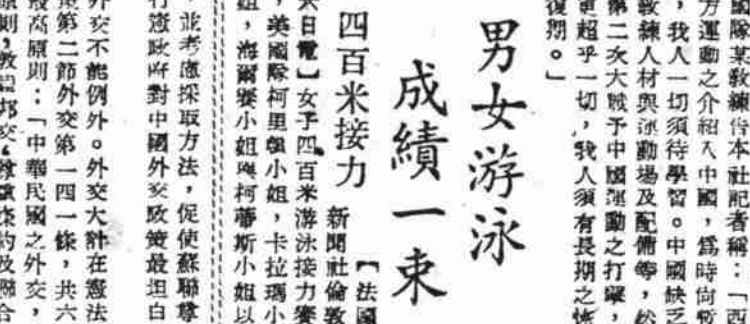 國隊某教練告本社記者稱:「西
方運動之介紹入中國,爲時尙暫
,我人一切須待學習。中國缺乏
教練人材與運動場及配備等,然
第二次大戰予中國運動之打擊,
更超乎一切,我人須有長期之恢
復期。」
男女游泳
成績一束
四百米接力
【法國
新聞社倫敦
日電】女子四百米游泳接力賽
,美國隊柯里小姐,卡拉瑪小
姐,海爾賽小姐與柯蒂斯小姐以
,並考慮採取方法,促使蘇聯尊
行憲政府對中國外交政策最坦白
外交不能例外。外交大計在憲法
第二節外交第一四一條,共六
最高原則:「中華民國之外交,
原則,敦睦邦交,尊重條約及聯合